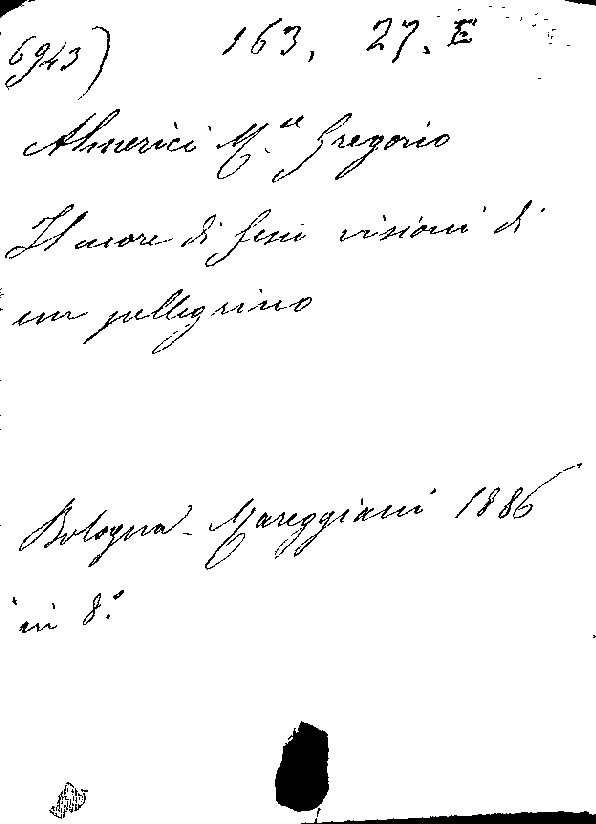 6943) 163. 27. E
Almerici M.se Gregorio
Il cuore di Gesù visioni di
un pellegrino
Bologna - Mareggiani 1886
in 8.º